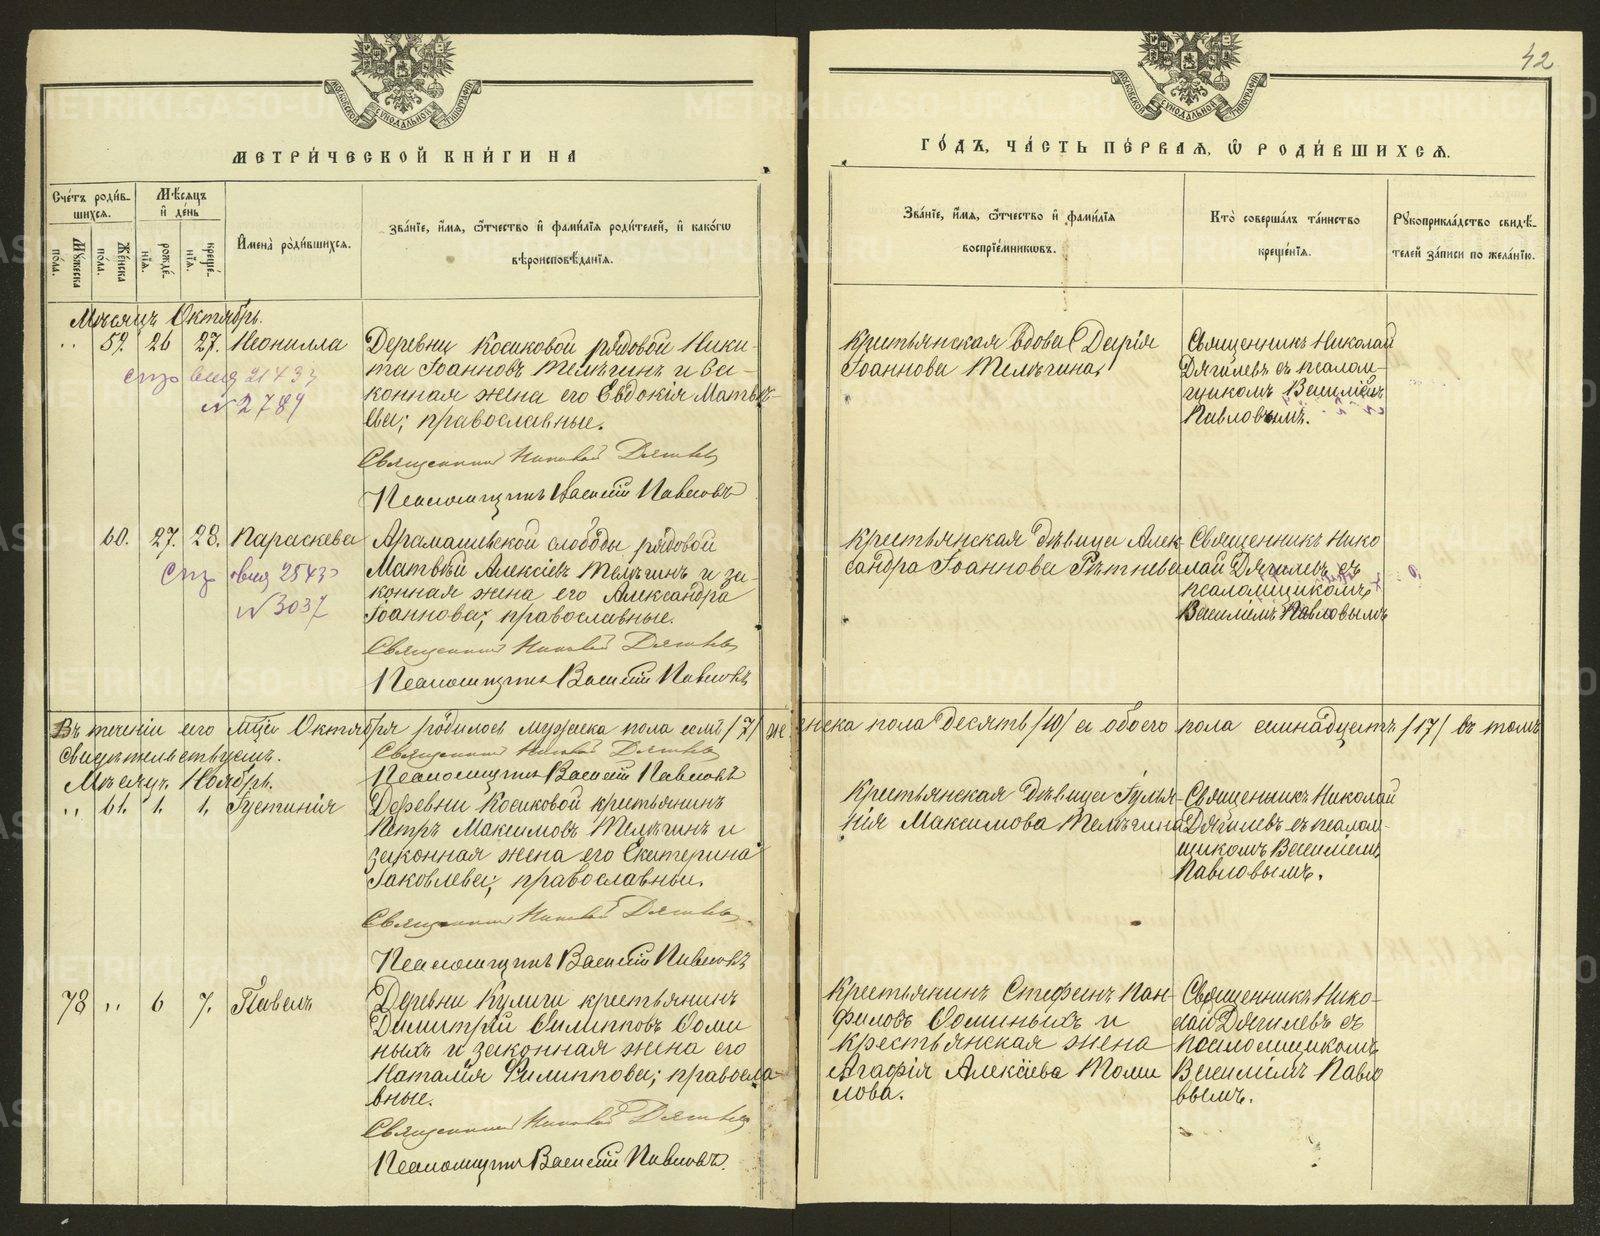 42
МЕТРИ́ЧЕСКОЙ КНИ́ГИ НА
ГО́ДЪ, ЧА́СТЬ ПЕ́РВАЯ, Ѿ РОДИ́ВШИХСЯ.
Сче́тъ роди́в-
шихся.
Мѣ́сяцъ
и҆ де́нь
Му́жеска
по́ла.
Же́нска
по́ла.
рожде́-
нїя.
креще́-
нїя.
И҆мена̀ роди́вшихся.
Зва́нїе, и҆́мя, ѻ҆́тчество и҆ фами́лїя роди́телей, и҆ како́гѡ
вѣроисповѣ́данїя.
Зва́нїе, и҆́мя, ѻ҆́тчество и҆ фами́лїя
воспрїе́мниковъ.
Кто̀ соверша́лъ та́инство
креще́нїя.
Рꙋкоприкла́дство свидѣ́-
телей за́писи по жела́нїю.
Мѣсяцъ Октябрь.
„ 59. 26 27. Неонилла
Деревни Косиковой рядовой Ники-
та Іоанновъ Телѣгинъ и за-
конная жена его Евдокія Матвѣ-
ева; православные.
Священникъ Николай Дягилевъ
Псаломщикъ Василій Павловъ
Крестьянская вдова Дарія
Іоаннова Телѣгина.
Священникъ Николай
Дягилевъ съ псалом-
щикомъ Василіемъ
Павловымъ.
№ 2789
60. 27. 28. Параскева
Арамашевской слободы рядовой
Матвѣй Алексіевъ Телѣгинъ и за-
конная жена его Александра
Іоаннова; православные.
Священникъ Николай Дягилевъ
Псаломщикъ Василій Павловъ
Крестьянская дѣвица Алек-
сандра Іоаннова Рѣтнева
Священникъ Нико
лай Дягилевъ съ
псаломщикомъ
Василіемъ Павловымъ
№ 3037
Въ теченіи сего мца Октября родилось мужеска пола семь /7/ женска пола десять /10/ а обоего пола семнадцать /17/ въ томъ
свидѣтельствуемъ.
Священникъ Николай Дягилевъ
Псаломщикъ Василій Павловъ
Мѣсяцъ Ноябрь.
„ 61. 1. 1. Густинія
Деревни Косиковой крестьянинъ
Петръ Максимовъ Телѣгинъ и
законная жена его Екатерина
Іаковлева; православны.
Священникъ Николай Дягилевъ
Псаломщикъ Василій Павловъ
Крестьянская дѣвица Іулья-
нія Максимова Телѣгина
Священникъ Николай
Дягилевъ съ псалом-
щикомъ Василіемъ
Павловымъ.
78 „ 6 7. Павелъ
Деревни Кулиги крестьянинъ
Димитрій Филипповъ Ѳоми
ныхъ и законная жена его
Наталія Филиппова; правосла-
вные.
Священникъ Николай Дягилевъ
Псаломщикъ Василій Павловъ.
Крестьянинъ Стефанъ Пан-
филовъ Ѳоминыхъ и
крестьянская жена
Агафія Алексіева Томи
лова.
Священникъ Нико-
лай Дягилевъ съ
псаломщикомъ
Василіемъ Павло
вымъ.